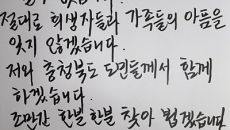 절대로 희생자들과 가족들의 아픔을
잊지 않겠습니다.
저와 충청북도 도민들께서 함께
하겠습니다.
조만간 한분 한분 찾아 뵙겠습니다